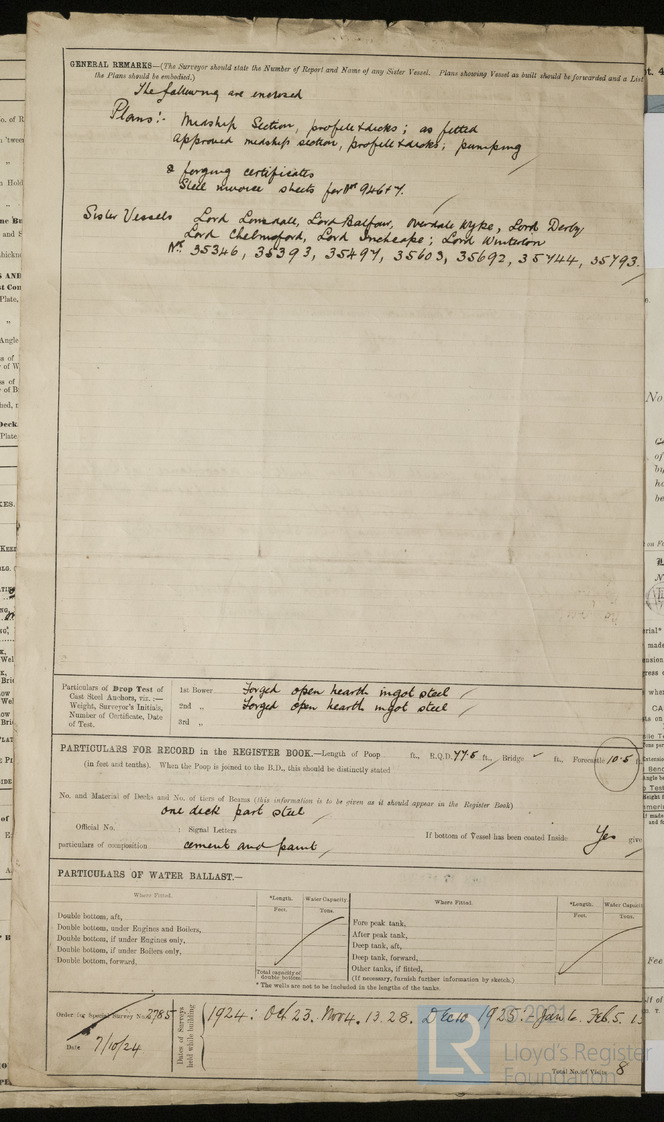 GENERAL REMARKS—(The Surveyor should state the Number of Report and Name of any Sister Vessel. Plans showing Vessel as built should be forwarded and a List
the Plans should be embodied.)
The following are enclosed
Plans:- Midship Section, profile & decks; as fitted
approved midship section, profile & decks; pumping
8 forging certificates
Steel invoice sheets for Nos 946 & 7.
Sister Vessels Lord Lonsdale, Lord Balfour, Overdale Wyke, Lord Derby
Lord Chelmsford, Lord Inchcape; Lord Winterton
Nos. 35346, 35393, 35497, 35603, 35692, 35744, 35793.
Particulars of Drop Test of
Cast Steel Anchors, viz. :—
Weight, Surveyor's Initials,
Number of Certificate, Date
of Test.
1st Bower Forged open hearth ingot steel
2nd " Forged open hearth ingot steel
3rd "
PARTICULARS FOR RECORD in the REGISTER BOOK.—Length of Poop ft., R.Q.D. 77.5 ft., Bridge - ft., Forecastle 10.5 f
(in feet and tenths). When the Poop is joined to the B.D., this should be distinctly stated
No. and Material of Decks and No. of tiers of Beams (this information is to be given as it should appear in the Register Book)
one deck part steel
Official No. : Signal Letters If bottom of Vessel has been coated Inside Yes give
particulars of composition cement and paint
PARTICULARS OF WATER BALLAST.—
Where Fitted. *Length. Water Capacity.
Feet. Tons.
Double bottom, aft,
Double bottom, under Engines and Boilers,
Double bottom, if under Engines only,
Double bottom, if under Boilers only,
Double bottom, forward,
Total capacity of
double bottom
Where Fitted. *Length. Water Capacit
Feet. Tons.
Fore peak tank,
After peak tank,
Deep tank, aft,
Deep tank, forward,
Other tanks, if fitted,
(If necessary, furnish further information by sketch.)
* The wells are not to be included in the lengths of the tanks.
Order for Special Survey No. 2785
Date 7/10/24
Dates of Surveys
held while building
1924: Oct 23. Nov 4. 13. 28. Dec 10 1925:- Jan 6. Feb. 5. 13
Total No. of Visits 8
© 2021
LR
Lloyd's Register
Foundation